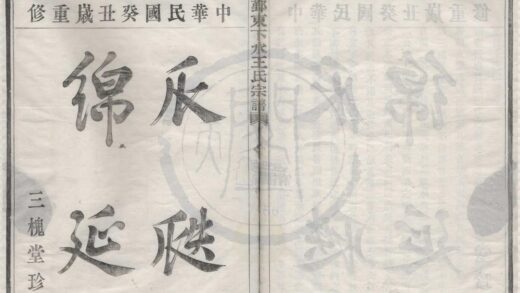 中華民國癸丑歲重修
瓜瓞
綿延
三槐堂珍
鄞東下水王氏宗譜